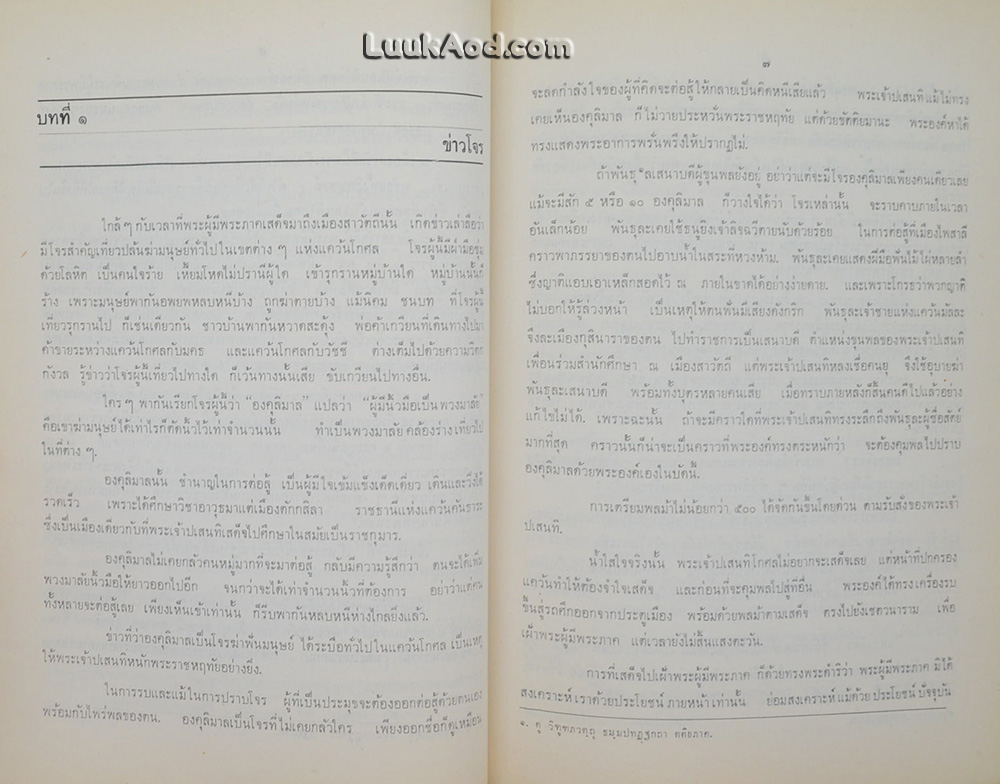 LuukAod.com
บทที่ ๑
ข่าวโจร
ใกล้ๆ กับเวลาที่พระผู้มีพระภาคเสด็จมาถึงเมืองสาวัตถีนั้น เกิดข่าวเล่าลือว่า
มีโจรสำคัญเที่ยวปล้นฆ่ามนุษย์ทั่วไปในเขตต่าง ๆ แห่งแคว้นโกศล โจรผู้นี้มีฝ่ามือชุ่ม
ด้วยโลหิต เป็นคนใจร้าย เหี้ยมโหดไม่ปรานีผู้ใด เข้ารุกรานหมู่บ้านใด หมู่บ้านนั้นก็
ร้าง เพราะมนุษย์พากันอพยพหลบหนีบ้าง ถูกฆ่าตายบ้าง แม้นิคม ชนบท ที่โจรผู้นี้
เที่ยวรุกรานไป ก็เช่นเดียวกัน ชาวบ้านพากันหวาดสะดุ้ง พ่อค้าเกวียนที่เดินทางไปมา
ค้าขายระหว่างแคว้นโกศลกับมคธ และแคว้นโกศลกับวัชชี ต่างเต็มไปด้วยความวิตก
กังวล รู้ข่าวว่าโจรผู้นี้เที่ยวไปทางใด ก็เว้นทางนั้นเสีย ขับเกวียนไปทางอื่น.
ใครๆ พากันเรียกโจรผู้นี้ว่า "องคุลิมาล" แปลว่า "ผู้มีนิ้วมือเป็นพวงมาลัย"
คือเขาฆ่ามนุษย์ได้เท่าไรก็ตัดนิ้วไว้เท่าจำนวนนั้น ทำเป็นพวงมาลัยคล้องร่างเที่ยวไป
ในที่ต่าง ๆ.
องคุลิมาลนั้น ชำนาญในการต่อสู้ เป็นผู้มีใจเข้มแข็งเด็ดเดี่ยว เดินและวิ่งได้
รวดเร็ว เพราะได้ศึกษาวิชาอาวุธมาแต่เมืองตักกสิลา ราชธานีแห่งแคว้นคันธาระ
ซึ่งเป็นเมืองเดียวกับที่พระเจ้าปเสนทิเสด็จไปศึกษาในสมัยเป็นราชกุมาร.
องคุลิมาลไม่เคยกลัวคนหมู่มากที่จะมาต่อสู้ กลับมีความรู้สึกว่า ตนจะได้เพิ่ม
พวงมาลัยนิ้วมือให้ยาวออกไปอีก จนกว่าจะได้เท่าจำนวนนิ้วที่ต้องการ อย่าว่าแต่คน
ทั้งหลายจะต่อสู้เลย เพียงเห็นเข้าเท่านั้น ก็รีบพากันหลบหนีห่างไกลยิ่งแล้ว.
ข่าวที่ว่าองคุลิมาลเป็นโจรฆ่าฟันมนุษย์ ได้ระบือทั่วไปในแคว้นโกศล เป็นเหตุ
ให้พระเจ้าปเสนทิหนักพระราชหฤทัยอย่างยิ่ง.
ในการรบและแม้ในการปราบโจร ผู้ที่เป็นประมุขจะต้องออกต่อสู้ด้วยตนเอง
พร้อมกับไพร่พลของตน. องคุลิมาลเป็นโจรที่ไม่เคยกลัวใคร เพียงออกชื่อก็ดูเหมือน
๗
จะลดกำลังใจของผู้ที่คิดจะต่อสู้ให้กลายเป็นคิดหนีเสียแล้ว พระเจ้าปเสนทิแม้ไม่ทรง
เคยเห็นองคุลิมาล ก็ไม่วายประหวั่นพระราชหฤทัย แต่ด้วยขัตติยมานะ พระองค์หาได้
ทรงแสดงพระอาการพรั่นพรึงให้ปรากฏไม่.
ถ้าพันธุ^๑ลเสนาบดีผู้ขุนพลยังอยู่ อย่าว่าแต่จะมีโจรองคุลิมาลเพียงคนเดียวเลย
แม้จะมีสัก ๕ หรือ ๑๐ องคุลิมาล ก็วางใจได้ว่า โจรเหล่านั้น จะราบคาบภายในเวลา
อันเล็กน้อย พันธุละเคยใช้ธนูยิงเจ้าลิจฉวีตายนับด้วยร้อย ในการต่อสู้ที่เมืองไพสาลี
คราวพาภรรยาของตนไปอาบน้ำในสระที่หวงห้าม. พันธุละเคยแสดงฝีมือฟันไม้ไผ่หลายลำ
ซึ่งญาติแอบเอาเหล็กสอดไว้ ณ ภายในขาดได้อย่างง่ายดาย. และเพราะโกรธว่าพวกญาติ
ไม่บอกให้รู้ล่วงหน้า เป็นเหตุให้ตนฟันมีเสียงดังกริก พันธุละเจ้าชายแห่งแคว้นมัลละ
จึงละเมืองกุสินาราของตน ไปทำราชการเป็นเสนาบดี ตำแหน่งขุนพลของพระเจ้าปเสนทิ
เพื่อนร่วมสำนักศึกษา ณ เมืองสาวัตถี แต่พระเจ้าปเสนทิหลงเชื่อคนยุ จึงใช้อุบายฆ่า
พันธุละเสนาบดี พร้อมทั้งบุตรหลายคนเสีย เมื่อทราบภายหลังก็สิ้นคนดีไปแล้วอย่าง
แก้ไขไม่ได้. เพราะฉะนั้น ถ้าจะมีคราวใดที่พระเจ้าปเสนทิทรงระลึกถึงพันธุละผู้ซื่อสัตย์
มากที่สุด คราวนั้นก็น่าจะเป็นคราวที่พระองค์ทรงตระหนักว่า จะต้องคุมพลไปปราบ
องคุลิมาลด้วยพระองค์เองในบัดนี้.
การเตรียมพลม้าไม่น้อยกว่า ๕๐๐ ได้จัดกันขึ้นโดยด่วน ตามรับสั่งของพระเจ้า
ปเสนทิ.
น้ำใสใจจริงนั้น พระเจ้าปเสนทิโกศลไม่อยากจะเสด็จเลย แต่หน้าที่ปกครอง
แคว้นทำให้ต้องจำใจเสด็จ และก่อนที่จะคุมพลไปสู่ที่อื่น พระองค์ได้ทรงเครื่องรบ
ขึ้นสู่รถศึกออกจากประตูเมือง พร้อมด้วยพลม้าตามเสด็จ ตรงไปยังเชตวนาราม เพื่อ
เฝ้าพระผู้มีพระภาค แต่เวลายังไม่สิ้นแสงตะวัน.
การที่เสด็จไปเฝ้าพระผู้มีพระภาค ก็ด้วยทรงพระดำริว่า พระผู้มีพระภาค มิได้
สงเคราะห์เราด้วยประโยชน์ภายหน้าเท่านั้น ย่อมสงเคราะห์แม้ด้วยประโยชน์ปัจจุบัน
๑. ดู วิฑูฑภวตฺถุ ธมฺมปทฏฺฐกถา ตติยภาค.